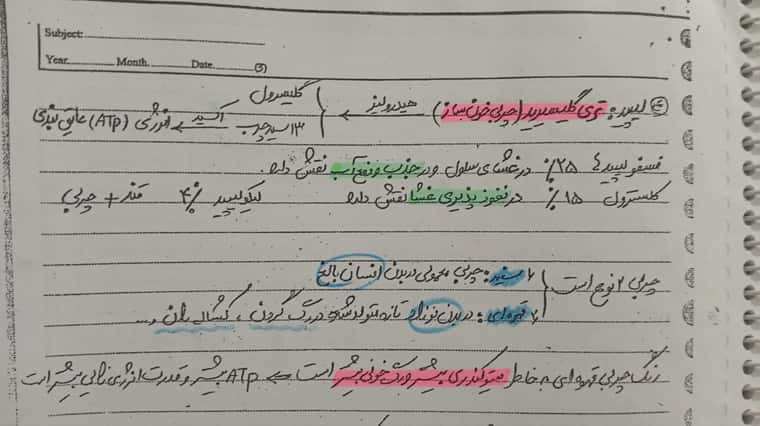 Subject:
Year. Month. Date. (3)
گلیسرول
④ لیپید: تری گلیسیرید (چربی خون ساز) ← هیدرولیز
۳ اسید چرب ← اکسید انرژی (ATP) عایق بندی
فسفولیپید ها ۲۵٪ در غشای سلول و در جذب و دفع آب نقش دارد.
کلسترول ۱۵٪ در نفوذ پذیری غشا نقش دارد لیکولیپید ۴٪ قند + چربی
۱ سفید: چربی معمولی در بدن انسان بالغ
چربی ۲ نوع است
۲ قهوه ای: در بدن نوزاد تازه متولد شده در رگ گردن، کشاله ران و...
رنگ چربی قهوه ای به خاطر میتوکندری بیشتر و رگ خونی بیشتر است ← ATP بیشتر و قدرت انرژی زایی بیشتر است